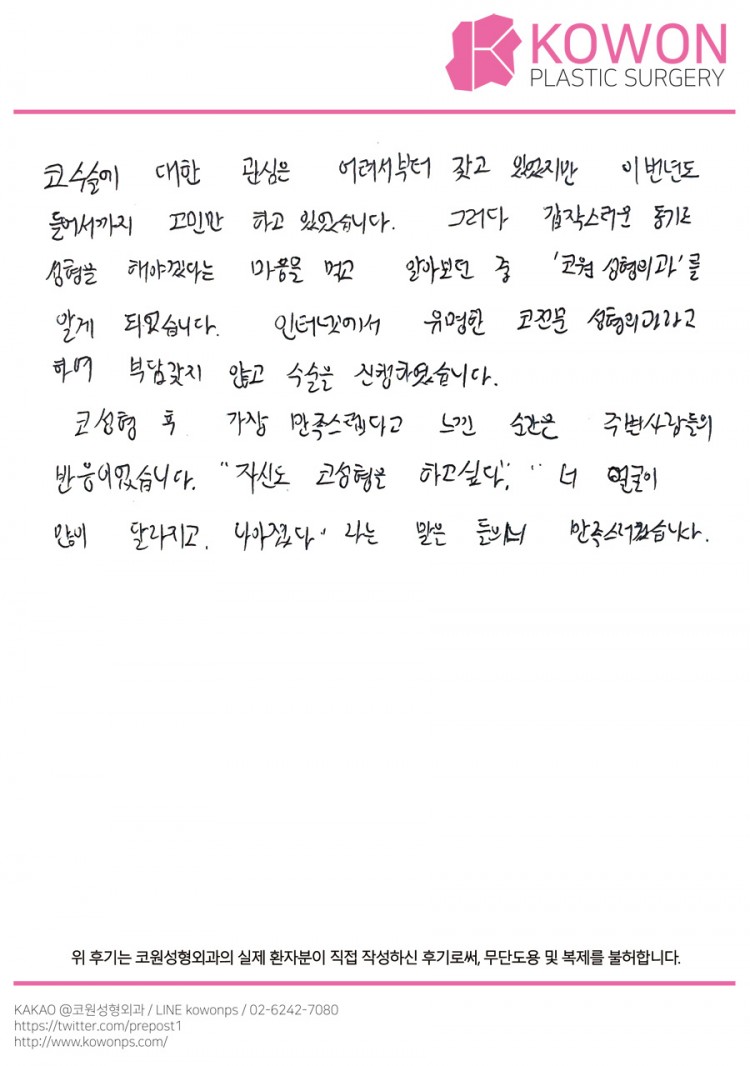 KOWON
PLASTIC SURGERY
코수술에 대한 관심은 어려서부터 갖고 있었지만 이번년도
들어서까지 고민만 하고 있었습니다. 그러다 갑작스러운 동기로
성형을 해야겠다는 마음을 먹고 알아보던 중 '코원 성형외과'를
알게 되었습니다. 인터넷에서 유명한 코전문 성형외과라고
하여 부담갖지 않고 수술은 진행하였습니다.
코성형 후 가장 만족스렙다고 느낀 순간은 주변사람들의
반응이었습니다. "자신도 코성형을 하고싶다", "너 얼굴이
많이 달라지고, 나아졌다" 라는 말은 들으니 만족스러웠습니다.
위 후기는 코원성형외과의 실제 환자분이 직접 작성하신 후기로써, 무단도용 및 복제를 불허합니다.
KAKAO @코원성형외과 / LINE kowonps / 02-6242-7080
https://twitter.com/prepost1
http://www.kowonps.com/